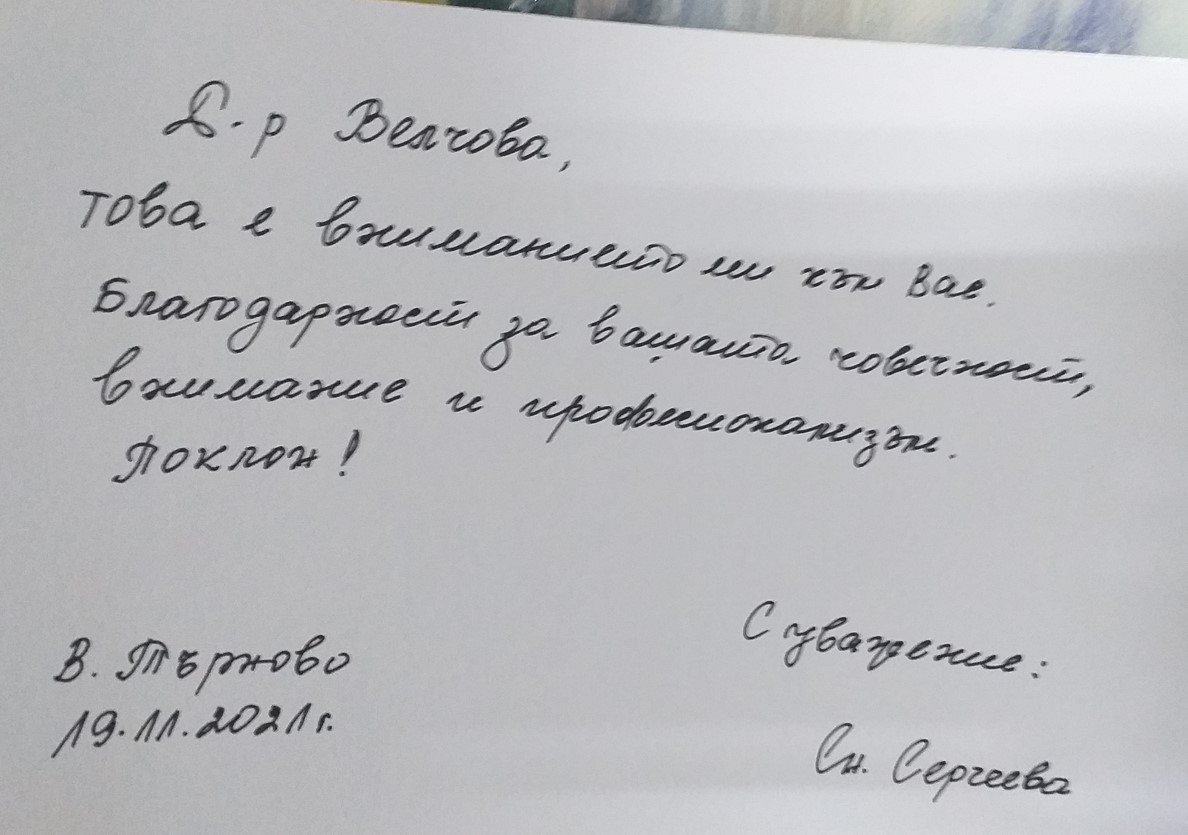 Д-р Велчова,
това е вниманието ми към Вас.
Благодарност за вашата човечност,
внимание и професионализъм.
Поклон!
С уважение:
В. Търново
19.11.2021г.
Сн. Сергеева